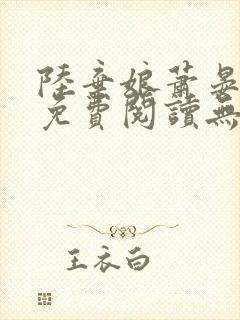 陸棄娘蕭晏
免費閱讀無
王衣白